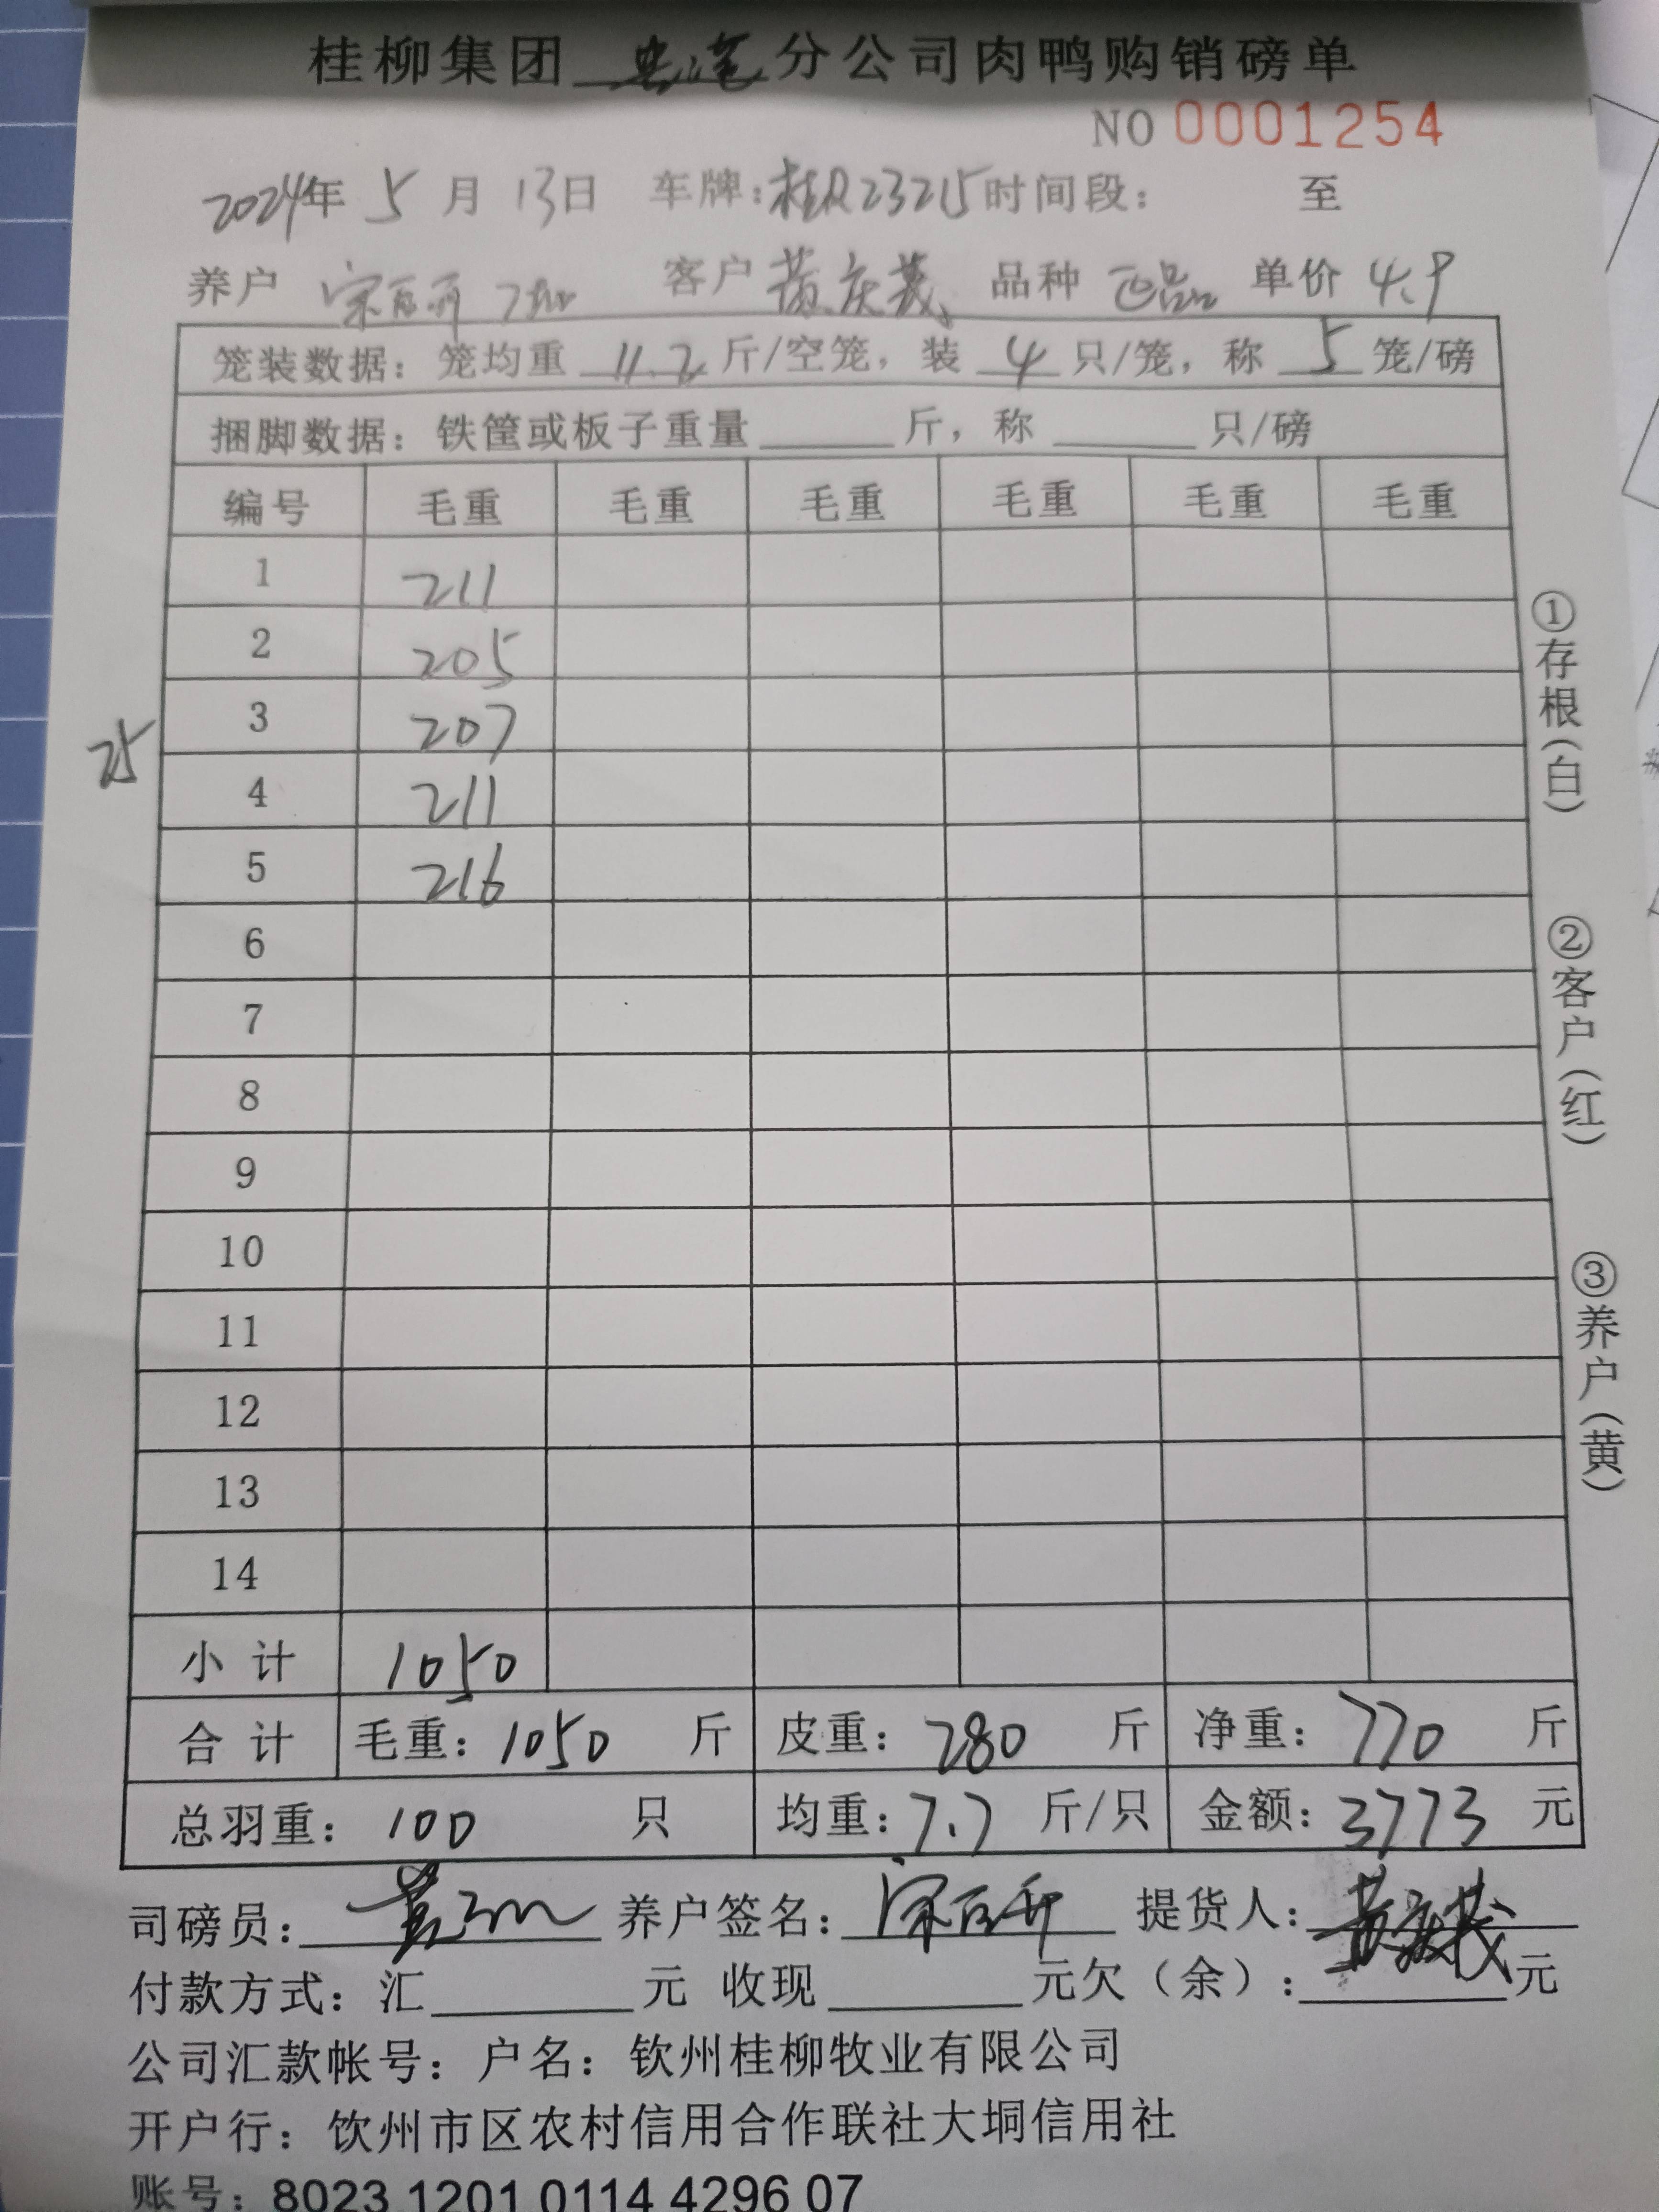 桂柳集团 分公司肉鸭购销磅单
NO 0001254
2024年 5 月 13日 车牌:桂R23215 时间段: 至
养户 客户 黄庆茂 品种 正品 单价 4.9
笼装数据: 笼均重 11.2 斤/空笼, 装 4 只/笼, 称 5 笼/磅
捆脚数据: 铁筐或板子重量 斤, 称 只/磅
编号 毛重 毛重 毛重 毛重 毛重 毛重
1 211
2 205
3 207
25
4 211
5 216
6
7
8
9
10
11
12
13
14
小计 1050
合计 毛重: 1050 斤 皮重: 280 斤 净重: 770 斤
总羽重: 100 只 均重: 7.7 斤/只 金额: 3773 元
司磅员: 养户签名: 提货人: 黄庆茂
付款方式: 汇 元 收现 元欠(余): 元
公司汇款帐号: 户名: 钦州桂柳牧业有限公司
开户行: 钦州市区农村信用合作联社大垌信用社
账号: 8023 1201 0114 4296 07
①存根(白)
②客户(红)
③养户(黄)